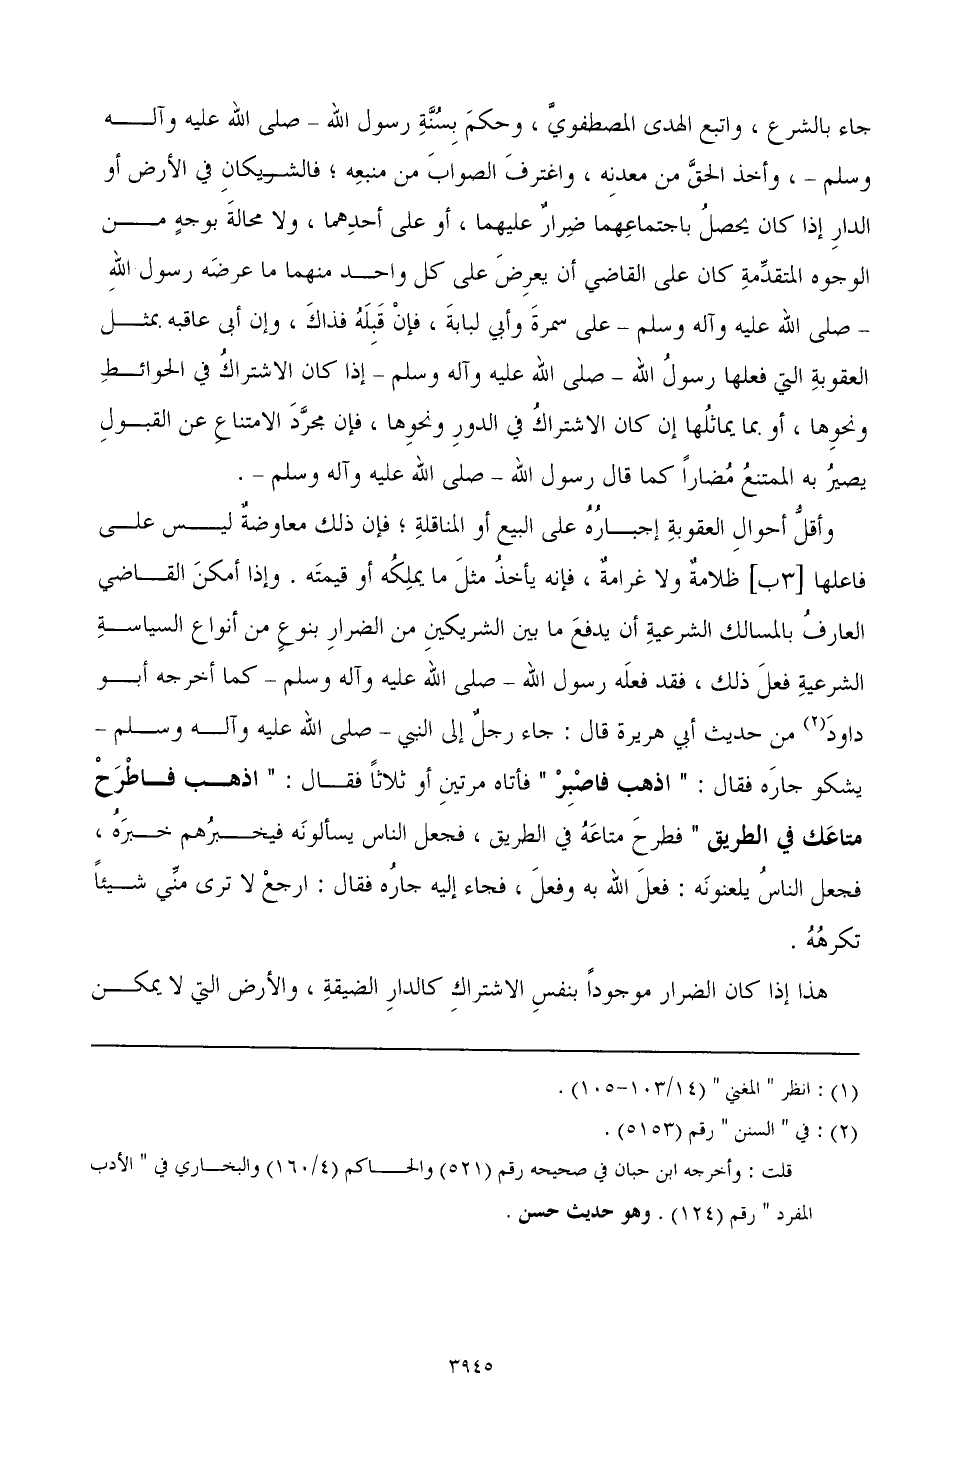 جاء بالشرع ، واتبع الهدى المصطفويَّ ، وحكمَ بِسُنَّةِ رسول الله – صلى الله عليه وآله
وسلم – ، وأخذ الحقَّ من معدنِه ، واغترفَ الصوابَ من منبعِه ؛ فالشريكانِ في الأرض أو
الدارِ إذا كان يحصلُ باجتماعِهما ضِرارٌ عليهما ، أو على أحدِهما ، ولا محالةَ بوجهٍ من
الوجوه المتقدِّمةِ كان على القاضي أن يعرضَ على كل واحد منهما ما عرضَه رسول اللهِ
– صلى الله عليه وآله وسلم – على سمرةَ وأبي لبابةَ ، فإنْ قَبِلَهُ فذاكَ ، وإن أبى عاقبه بمثل
العقوبةِ التي فعلها رسولُ الله – صلى الله عليه وآله وسلم – إذا كان الاشتراكُ في الحوائطِ
ونحوِها ، أو بما يماثلُها إن كان الاشتراكُ في الدورِ ونحوِها ، فإن مجرَّدَ الامتناعِ عن القبولِ
يصيرُ به الممتنعُ مُضاراً كما قال رسول الله – صلى الله عليه وآله وسلم – .
وأقلُّ أحوالِ العقوبةِ إجبارُهُ على البيع أو المناقلةِ ؛ فإن ذلك معاوضةٌ ليس على
فاعلها [٣ب] ظلامةٌ ولا غرامةٌ ، فإنه يأخذُ مثلَ ما يملِكُه أو قيمتَه . وإذا أمكنَ القاضي
العارفُ بالمسالك الشرعيةِ أن يدفعَ ما بين الشريكينِ من الضرارِ بنوعٍ من أنواع السياسةِ
الشرعيةِ فعلَ ذلك ، فقد فعلَه رسول الله – صلى الله عليه وآله وسلم – كما أخرجه أبو
داودَ(٢) من حديث أبي هريرة قال : جاء رجلٌ إلى النبي – صلى الله عليه وآله وسلم –
يشكو جارَه فقال : " اذهب فاصْبِرْ " فأتاه مرتينِ أو ثلاثاً فقال : " اذهب فاطْرَحْ
متاعَك في الطريق " فطرحَ متاعَهُ في الطريق ، فجعل الناس يسألونَه فيخبرُهم خبرَهُ ،
فجعل الناسُ يلعنونَه : فعلَ الله به وفعلَ ، فجاء إليه جارُه فقال : ارجعْ لا ترى منِّي شيئاً
تكرهُهُ .
هذا إذا كان الضرار موجوداً بنفسِ الاشتراكِ كالدارِ الضيقةِ ، والأرض التي لا يمكن
(١) : انظر " المغني " (١٤/ ١٠٣–١٠٥) .
(٢) : في " السنن " رقم (٥١٥٣) .
قلت : وأخرجه ابن حبان في صحيحه رقم (٥٢١) والحاكم (٤/ ١٦٠) والبخاري في " الأدب
المفرد " رقم (١٢٤) . وهو حديث حسن .
٣٩٤٥